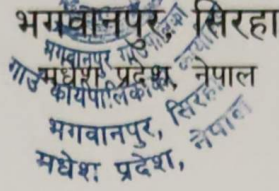 भगवानपुर, सिरहा
मधेश प्रदेश, नेपाल
भगवानपुर गाउँपालिका
गाउँ कार्यपालिकाको कार्या
भगवानपुर, सिरहा
मधेश प्रदेश, नेपाल